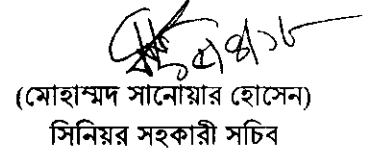 (মোহাম্মদ সানোয়ার হোসেন)
সিনিয়র সহকারী সচিব